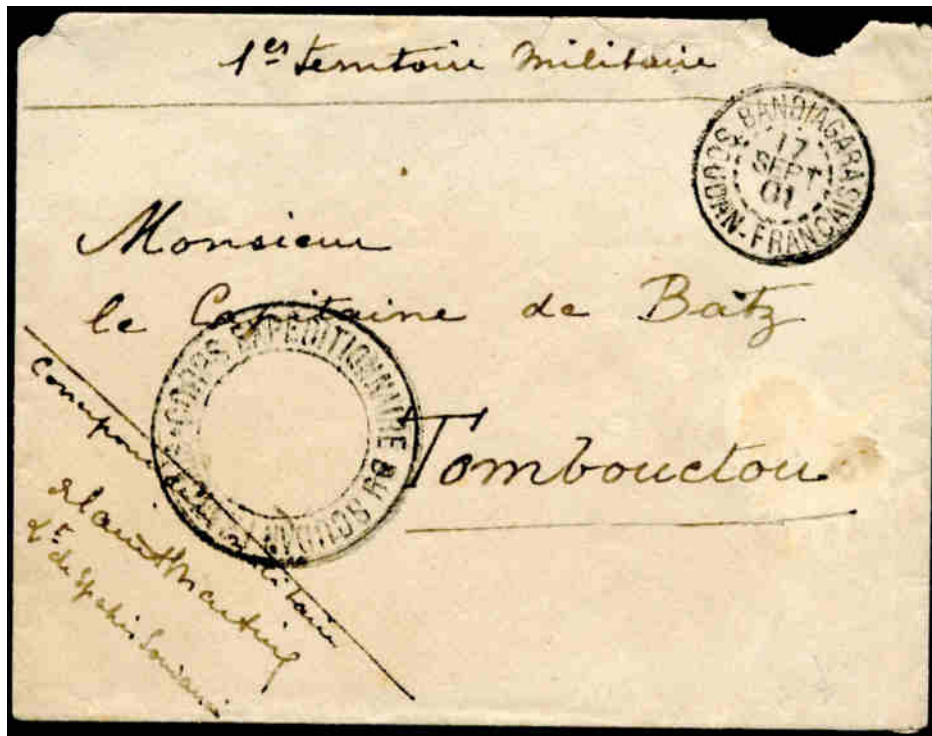 1er Territoire Militaire
BANDIAGARA
17
SEPT
01
SOUDAN-FRANÇAIS
Monsieur
le Capitaine de Batz
CORPS EXPEDITIONNAIRE DU SOUDAN
Tombouctou
Correspondance militaire
Lt de Spahis Soudanais